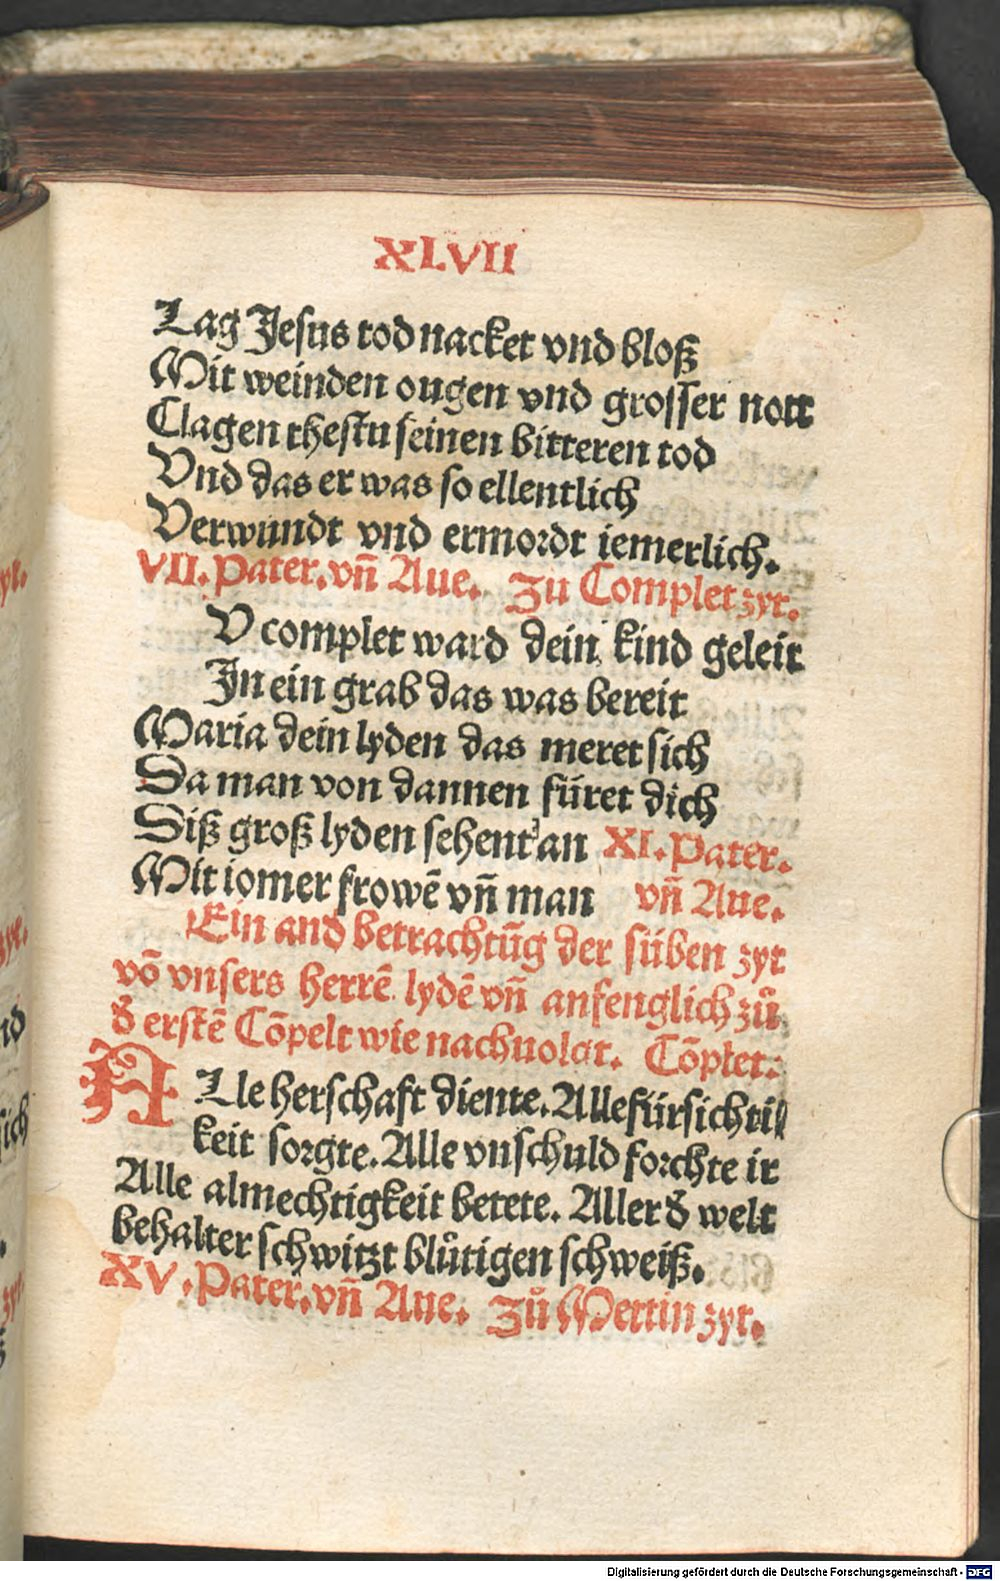 XLVII
Lag Jesus tod nacket vnd bloß
Mit weinden ougen vnd grosser nott
Clagen thestu seinen bitteren tod
Vnd das er was so ellentlich
Verwundt vnd ermordt iemerlich.
VII. Pater. vn̄ Aue. Zu Complet zyt.
V complet ward dein kind geleit
In ein grab das was bereit
Maria dein lyden das meret sich
Da man von dannen füret dich
Diß groß lyden sehent an XI. Pater.
Mit iomer frowē vn̄ man vn̄ Aue.
Ein and betrachtūg der süben zyt
vō vnsers herrē lydē vn̄ anfenglich zů
d erstē Cōpelt wie nachuolgt. Cōplet:
ALle herschaft diente. Alle fürsichti
keit sorgte. Alle vnschuld forchte ir
Alle almechtigkeit betete. Aller d welt
behalter schwitzt blůtigen schweiß.
XV. Pater. vn̄ Aue. Zů Mettin zyt.
Digitalisierung gefördert durch die Deutsche Forschungsgemeinschaft - DFG